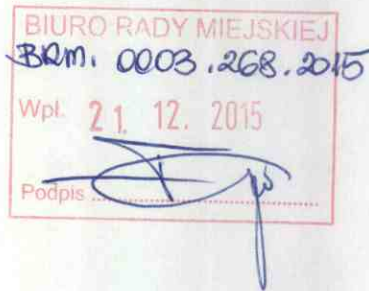 BIURO RADY MIEJSKIEJ
BRM. 0003.268.2015
Wpł. 21. 12. 2015
Podpis ................................